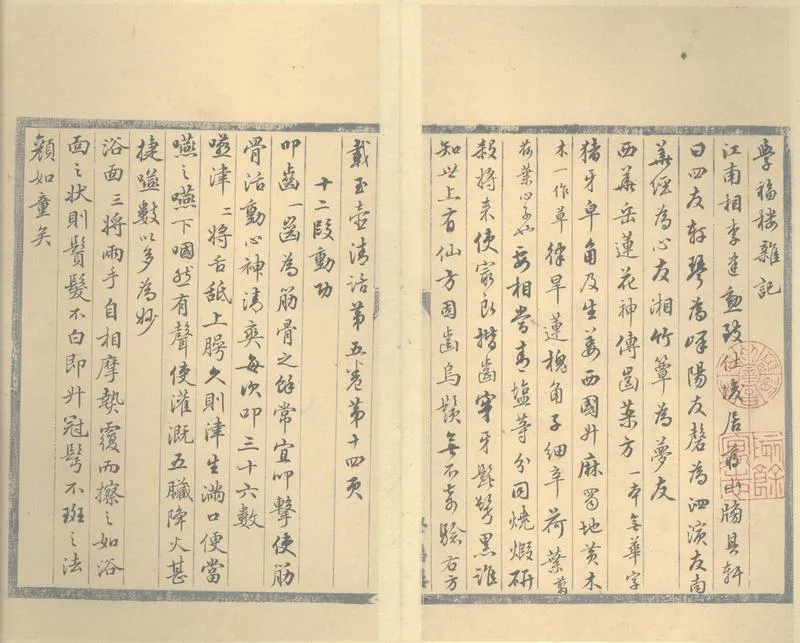 學福樓雜記
江南相李建勳致仕後居蔣山牓其軒
曰四友軒琴為嶧陽友磬為泗濱友南
華經為心友湘竹簟為夢友
西華岳蓮花神傳齒藥方 一本無華字
猪牙皁角及生姜西國升麻蜀地黃木
木一作草 律旱蓮槐角子細辛荷葉
荷葉心子也 要相當青塩等分同燒煅研
殺將来使最良揩齒牢牙髭鬢黑誰
知世上有仙方固齒烏鬚無不奇驗右方
載玉壺清話第五卷第十四頁
十二段動功
叩齒一齒為筋骨之餘常宜叩擊使筋
骨活動心神清爽每次叩三十六數
嚥津二將舌舐上腭久則津生滿口便當
嚥之嚥下嘓然有聲使灌溉五臟降火甚
捷嚥數以多為妙
浴面三將兩手自相摩熱覆而擦之如浴
面之狀則鬚髮不白即升冠鬢不斑之法
顏如童矣